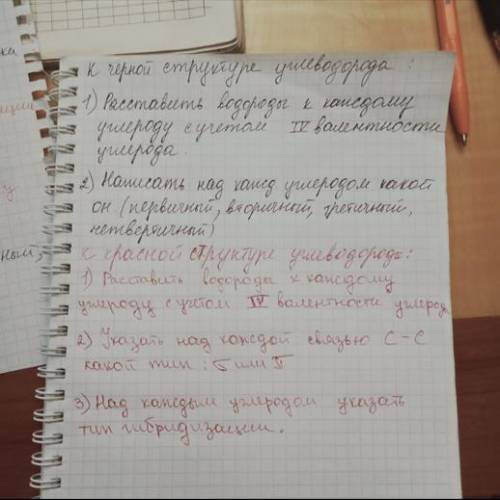 к черной структуре углеводорода :
1) Расставить водороды к каждому
углероду с учетом IV валентности
углерода.
2) Написать над кажд углеродом какой
он (первичный, вторичный, третичный,
четвертичный)
к красной структуре углеводорода:
1) Расставить водороды к каждому
углероду с учетом IV валентности углерода
2) Указать над каждой связью С-С
какой тип : σ или π
3) Над каждым углеродом указать
тип гибридизации.